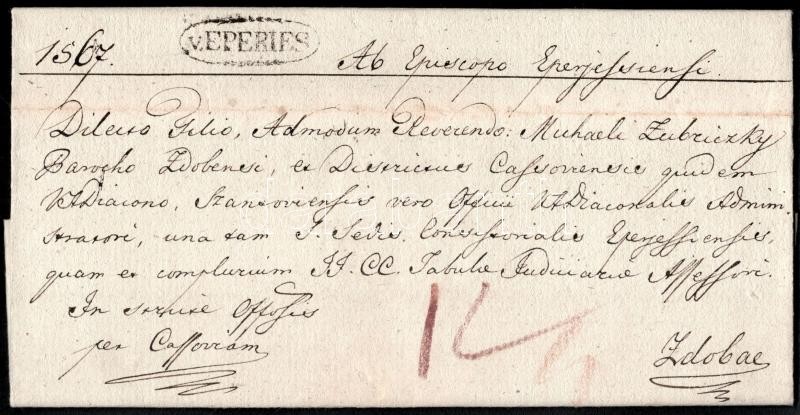 v. EPERIES
1567. Ab Episcopo Eperjessiensi.
Dilecto Filio, Admodum Reverendo: Michaeli Zubriczky
Parocho Zdobensi, et Districtus Cassoviensis quidem
V. A Diacono, Szantoviensis vero Officii V. A Diaconalis Admini
stratori, una tam S. Sedis Consistorialis Eperjessiensis,
quam et complurium II. CC. Tabulæ Judiciariæ Assessori.
In Officiosis
per Cassoviam
Zdobae